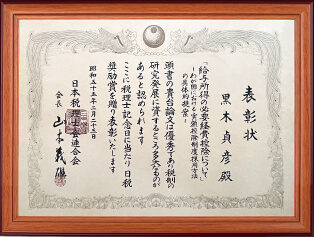 表彰状
黒木貞彦殿
「給与所得の必要経費控除について」
－わが国における実額控除制度採用方法
の具体的提案－
頭書の貴台論文は優秀であり税制の
研究発展に資するところ多大なものが
あると認められます
ここに税理士記念日に当たり日税
奨励賞を贈り表彰いたします
昭和五十五年二月二十三日
日本税理士会連合会
会長 山本義雄